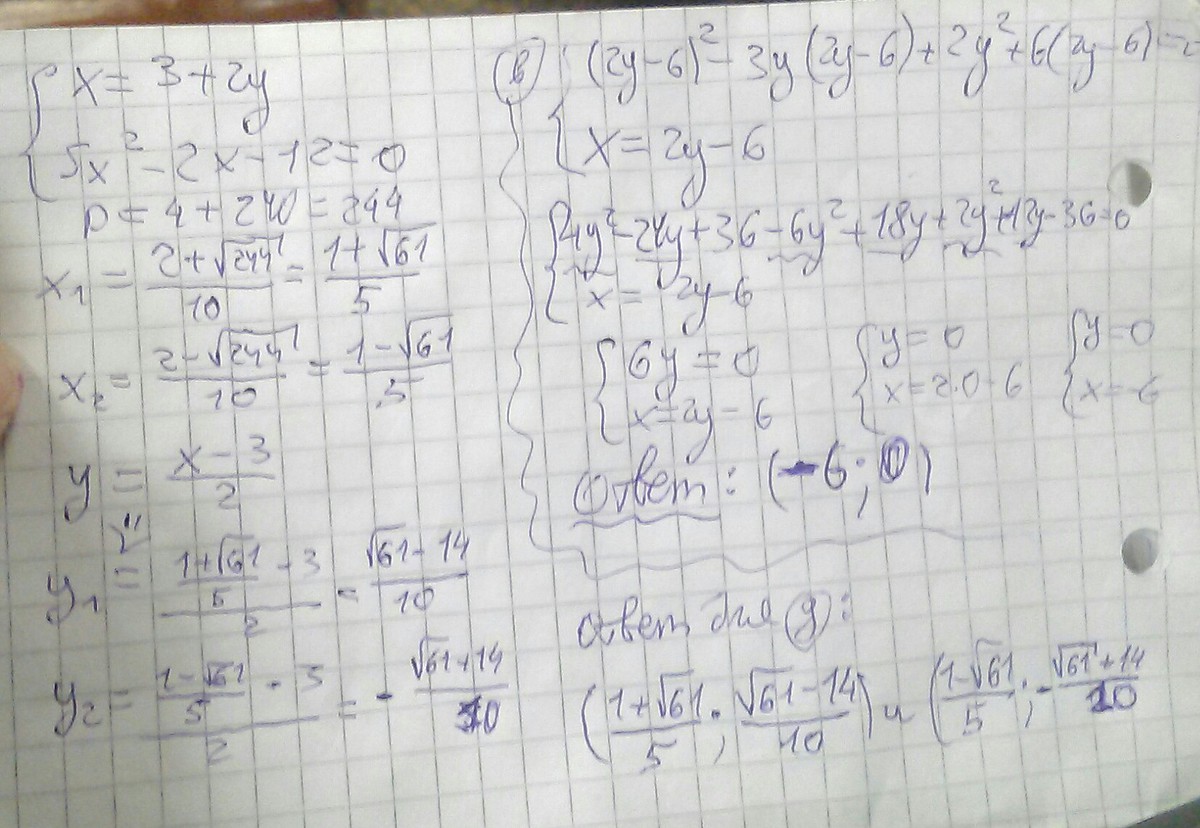 { x = 3 + 2y
5x² - 2x - 12 = 0
D = 4 + 240 = 244
x₁ = (2 + √244)/10 = (1 + √61)/5
x₂ = (2 - √244)/10 = (1 - √61)/5
y = (x - 3)/2
y₁ = ((1 + √61)/5 - 3)/2 = (√61 - 14)/10
y₂ = ((1 - √61)/5 - 3)/2 = - (√61 + 14)/10
в) { (2y - 6)² - 3y(2y - 6) + 2y² + 6(2y - 6) =
x = 2y - 6
{ 4y² - 24y + 36 - 6y² + 18y + 2y² + 12y - 36 = 0
x = 2y - 6
{ 6y = 0 { y = 0 { y = 0
x = 2y - 6 x = 2·0 - 6 x = -6
Ответ: (-6; 0)
ответ для g):
((1 + √61)/5; (√61 - 14)/10) и ((1 - √61)/5; - (√61 + 14)/10